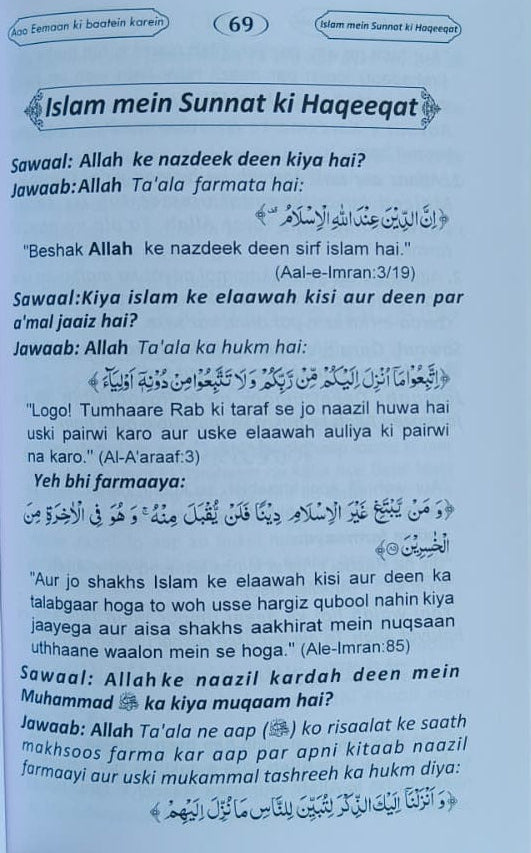 Aao Eemaan ki baatein karein
69
Islam mein Sunnat ki Haqeeqat
Islam mein Sunnat ki Haqeeqat
Sawaal: Allah ke nazdeek deen kiya hai?
Jawaab:Allah Ta'ala farmata hai:
﴿اِنَّ الدِّيْنَ عِنْدَ اللّٰهِ الْاِسْلَامُ ۣ﴾
"Beshak Allah ke nazdeek deen sirf islam hai."
(Aal-e-Imran:3/19)
Sawaal:Kiya islam ke elaawah kisi aur deen par
a'mal jaaiz hai?
Jawaab: Allah Ta'ala ka hukm hai:
﴿اِتَّبِعُوْا مَاۤ اُنْزِلَ اِلَيْكُمْ مِّنْ رَّبِّكُمْ وَ لَا تَتَّبِعُوْا مِنْ دُوْنِهٖۤ اَوْلِيَآءَ﴾
"Logo! Tumhaare Rab ki taraf se jo naazil huwa hai
uski pairwi karo aur uske elaawah auliya ki pairwi
na karo." (Al-A'araaf:3)
Yeh bhi farmaaya:
﴿وَ مَنْ يَّبْتَغِ غَيْرَ الْاِسْلَامِ دِيْنًا فَلَنْ يُّقْبَلَ مِنْهُ ۚ وَ هُوَ فِي الْاٰخِرَةِ مِنَ
الْخٰسِرِيْنَ ۝۸۵﴾
"Aur jo shakhs Islam ke elaawah kisi aur deen ka
talabgaar hoga to woh usse hargiz qubool nahin kiya
jaayega aur aisa shakhs aakhirat mein nuqsaan
uthhaane waalon mein se hoga." (Ale-Imran:85)
Sawaal: Allah ke naazil kardah deen mein
Muhammad ﷺ ka kiya muqaam hai?
Jawaab: Allah Ta'ala ne aap (ﷺ) ko risaalat ke saath
makhsoos farma kar aap par apni kitaab naazil
farmaayi aur uski mukammal tashreeh ka hukm diya:
﴿وَ اَنْزَلْنَاۤ اِلَيْكَ الذِّكْرَ لِتُبَيِّنَ لِلنَّاسِ مَا نُزِّلَ اِلَيْهِمْ﴾